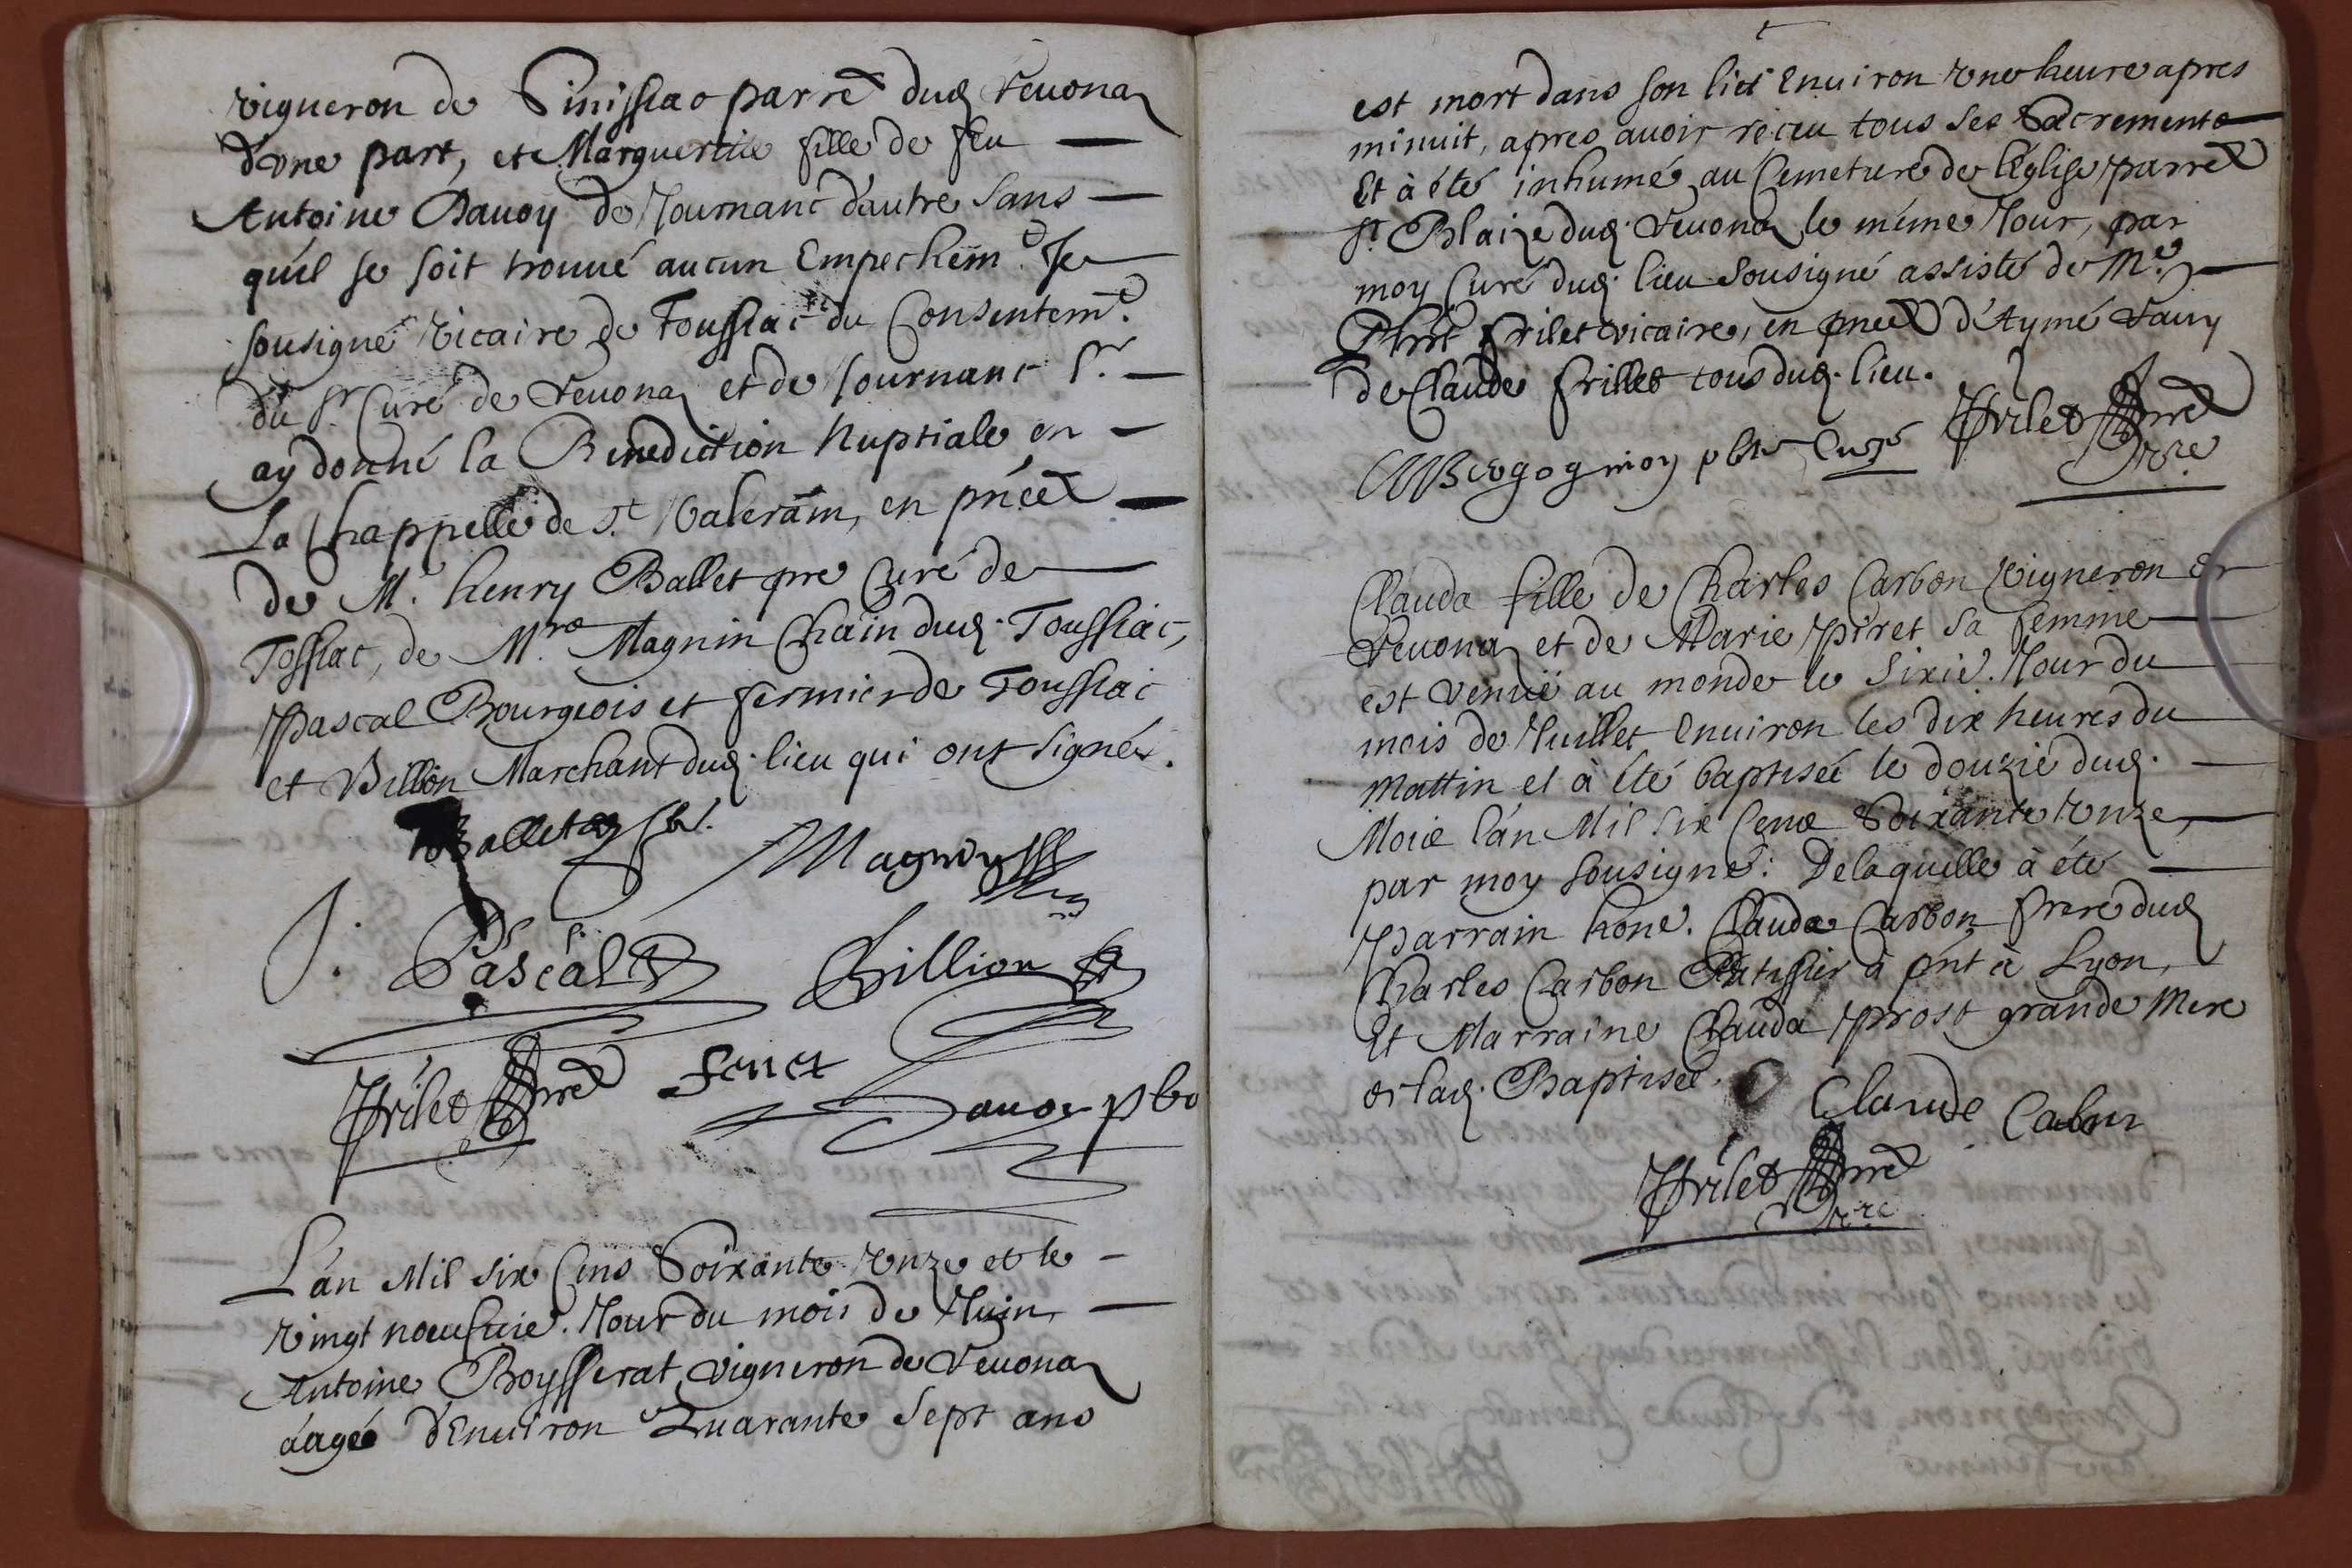 vigneron de Sinissiac parre dud. Veuona
d'vne part, et Marguerite fille de feu
Antoine Dauoy de Journanc d'autre sans
qu'il se soit trouué aucun Empechem̃e. Je
sousigné Vicaire de Toussiac du Consentem̃e.
du Sr. Curé de Veuona et de Journanc Sr.
ay donné la Benediction Nuptiale en
La Chappelle de St. Valeram, en pñce
de M. henry Ballet pre Curé de
Tossiac, de Mre. Magnin Chãin dud. Toussiac,
Pascal Bourgeois et fermier de Toussiac
et Billion Marchant dud. lieu qui ont signés.
Ballet
Magnin
J. Pascal
Billion
frilet pre
fenet
Dauoy pbr
L'an Mil six Cens Soixante Vnze et le
Vingt neufuie. Jour du mois de Juin
Antoine Boysserat vigneron de Veuona
aagée d'Enuiron Quarante Sept ans
est mort dans son lict Enuiron Vne heure apres
minuit, apres auoir réceu tous ses Sacrements
Et à été inhumé au Cemeture de l'Eglise parre
St. Blaize dud. Veuona le méme Jour, par
moy Curé dud. lieu Sousigné assisté de Me.
Phñt frilet vicaire, en pñce d'Aymé Vauy
de Claude frillet tous dud. lieu.
Bergogmoy pbre Curé
frilet pre
vre
Clauda fille de Charles Carbon Vigneron de
Veuona et de Marie Piret sa femme
est Venuë au monde le Sixié. Jour du
mois de Juillet Enuiron les dix heures du
Mattin et à été baptisée le douzié dud.
Mois l'an Mil Six Cens Soixante Vnze,
par moy Sousigné: De laquelle à été
Parrain hone. Claude Carbon frere dud
Charles Carbon Patissier à pñt à Lyon,
Et Marraine Clauda Prost grande Mere
de lad. Baptisée.
Claude Cabon
frilet pre
vre